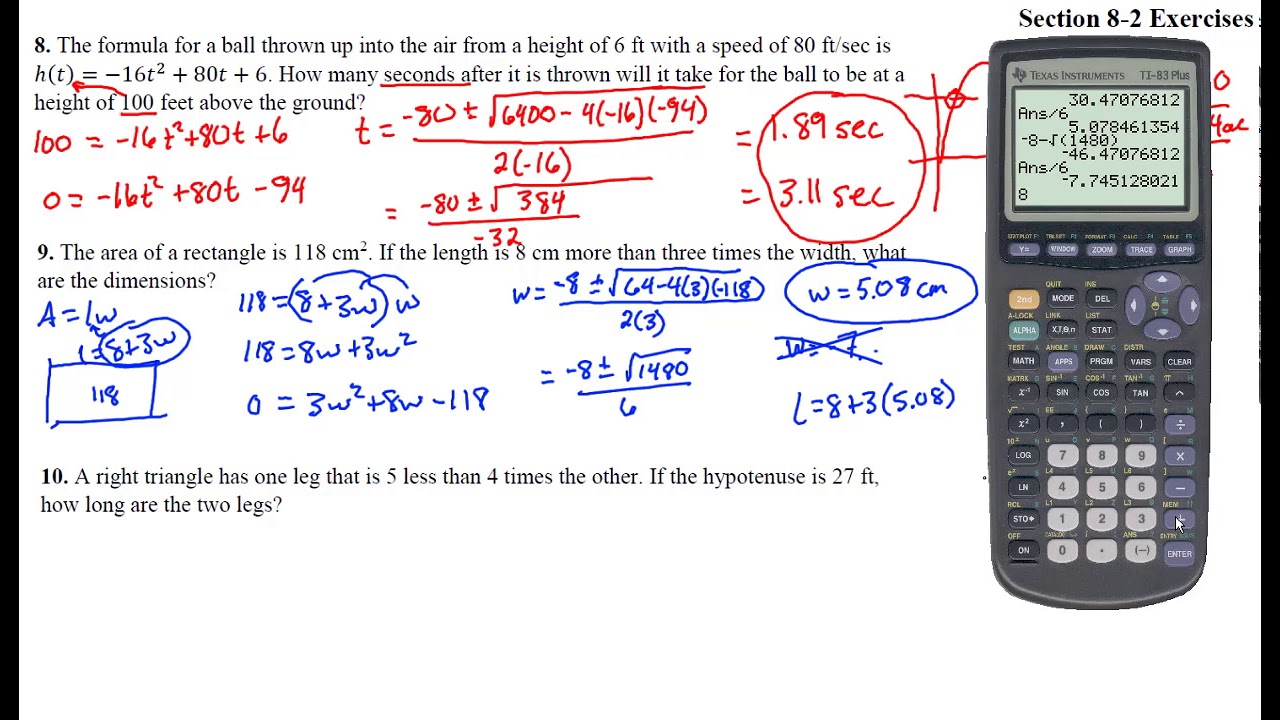 Section 8-2 Exercises
8. The formula for a ball thrown up into the air from a height of 6 ft with a speed of 80 ft/sec is
h(t) = −16t² + 80t + 6. How many seconds after it is thrown will it take for the ball to be at a
height of 100 feet above the ground?
100 = -16t²+80t+6
0 = -16t²+80t-94
t = -80 ± √6400-4(-16)(-94)
2(-16)
= -80 ± √384
-32
= 1.89 sec
= 3.11 sec
0
4ac
9. The area of a rectangle is 118 cm². If the length is 8 cm more than three times the width, what
are the dimensions?
A = lw
l=8+3w
118
118=(8+3w)w
118=8w+3w²
0 = 3w²+8w-118
w= -8 ± √64-4(3)(-118)
2(3)
= -8 ± √1480
6
w=5.08cm
l=8+3(5.08)
10. A right triangle has one leg that is 5 less than 4 times the other. If the hypotenuse is 27 ft,
how long are the two legs?
TEXAS INSTRUMENTS TI-83 Plus
30.47076812
Ans/6
5.078461354
-8-√(1480)
-46.47076812
Ans/6
-7.745128021
8
STAT PLOT F1 TBLSET F2 FORMAT F3 CALC F4 TABLE F5
Y= WINDOW ZOOM TRACE GRAPH
QUIT INS
2nd MODE DEL
A-LOCK LINK LIST
ALPHA X,T,θ,n STAT
TEST A ANGLE B DRAW C DISTR
MATH APPS PRGM VARS CLEAR
MATRX D SIN⁻¹ E COS⁻¹ F TAN⁻¹ G π H
x⁻¹ SIN COS TAN ^
√ I EE J { K } L e M
x² , ( ) ÷
10ˣ N u O v P w Q [ R
LOG 7 8 9 ×
eˣ S L4 T L5 U L6 V ] W
LN 4 5 6 −
RCL X L1 Y L2 Z L3 θ MEM "
STO▸ 1 2 3 +
OFF CATALOG i ANS ENTRY SOLVE
ON 0 . (−) ENTER